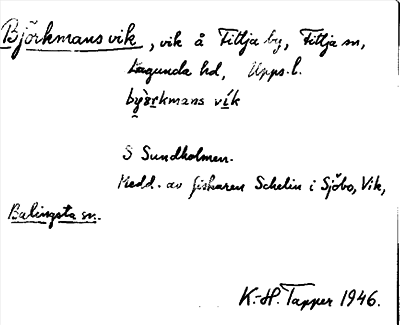 Björkmansvik, vik å Fittja by, Fittja sn,
Lagunda hd, Upps. l.
by̬örkmans vi̍k
S Sundholmen.
Medd. av fiskaren Schelin i Sjöbo, Vik,
Balingsta sn.
K.-H. Tapper 1946.